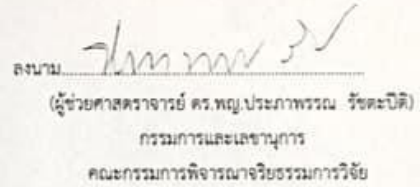 ลงนาม
(ผู้ช่วยศาสตราจารย์ ดร.พญ.ประภาพรรณ รัชตะปิติ)
กรรมการและเลขานุการ
คณะกรรมการพิจารณาจริยธรรมการวิจัย